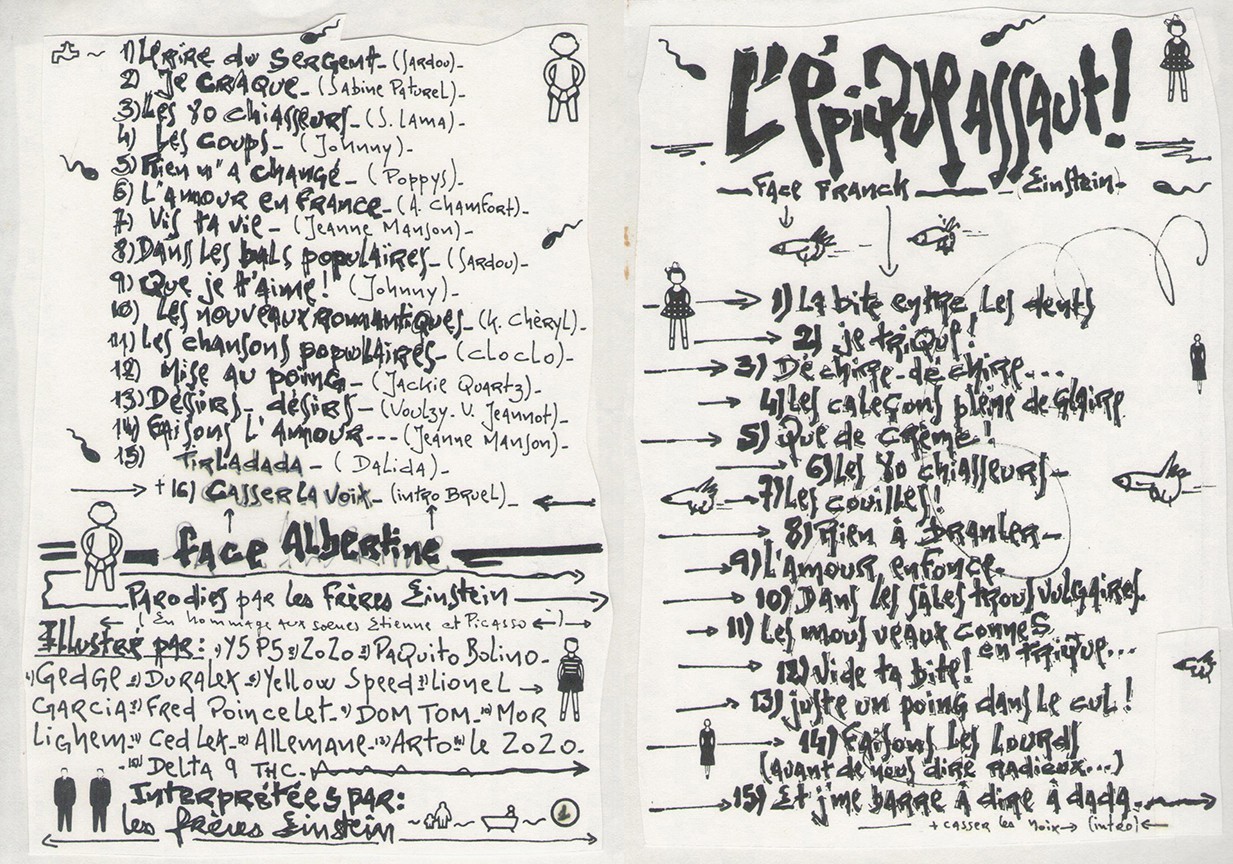 1) Le rire du Sergent - (Sardou) -
2) Je CRAQUE - (Sabine Paturel) -
3) Les 80 chiasseurs - (S. Lama) -
4) Les Coups - (Johnny) -
5) Rien n'a changé - (Poppys) -
6) L'Amour en France - (A. Chamfort) -
7) Vis ta vie - (Jeanne Manson) -
8) Dans les bals populaires - (Sardou) -
9) Que je t'aime! (Johnny) -
10) Les nouveaux romantiques - (K. Chèryl) -
11) Les chansons populaires - (cloclo) -
12) Mise au poing - (Jackie Quartz) -
13) Désirs - désirs - (Voulzy. V. Jeannot) -
14) Faisons L'Amour --- (Jeanne Manson) -
15) TirLadada - (Dalida) -
+ 16) CASSER LA VOIX - (intro Bruel) -
face Albertine
Parodies par les Frères Einstein
(En hommage aux soeurs Etienne et Picasso)
Illustré par: 1) Y5P5 2) 2020 3) Paquito Bolino -
4) Gedge 5) Duralex 6) Yellow Speed 7) Lionel
Garcia 8) Fred Poincelet 9) DOM TOM 10) Mor
Lighem 11) Ced Lex 12) Allemane 13) Arto 14) Le 2020 -
15) Delta 9 THC -
Interprétées par:
les frères Einstein
L'ÉpiQUE ASSAUT!
Face Franck - Einstein -
1) La bite entre les dents
2) je triQue!
3) Déchire-dé chire...
4) Les caleçons pleine de Glaire
5) Que de crème!
6) Les 80 chiasseurs -
7) Les couilles!
8) Rien à Branler -
9) L'Amour enfonce -
10) Dans les sales trous vulgaires
11) Les mous veaux connes
en trique...
12) Vide ta bite!
13) juste un poing dans le cul!
14) Faisons les Lourds
(avant de nous dire radieux...)
15) Et j'me barre à dire à dada -
+ casser les noix → (intro) ←